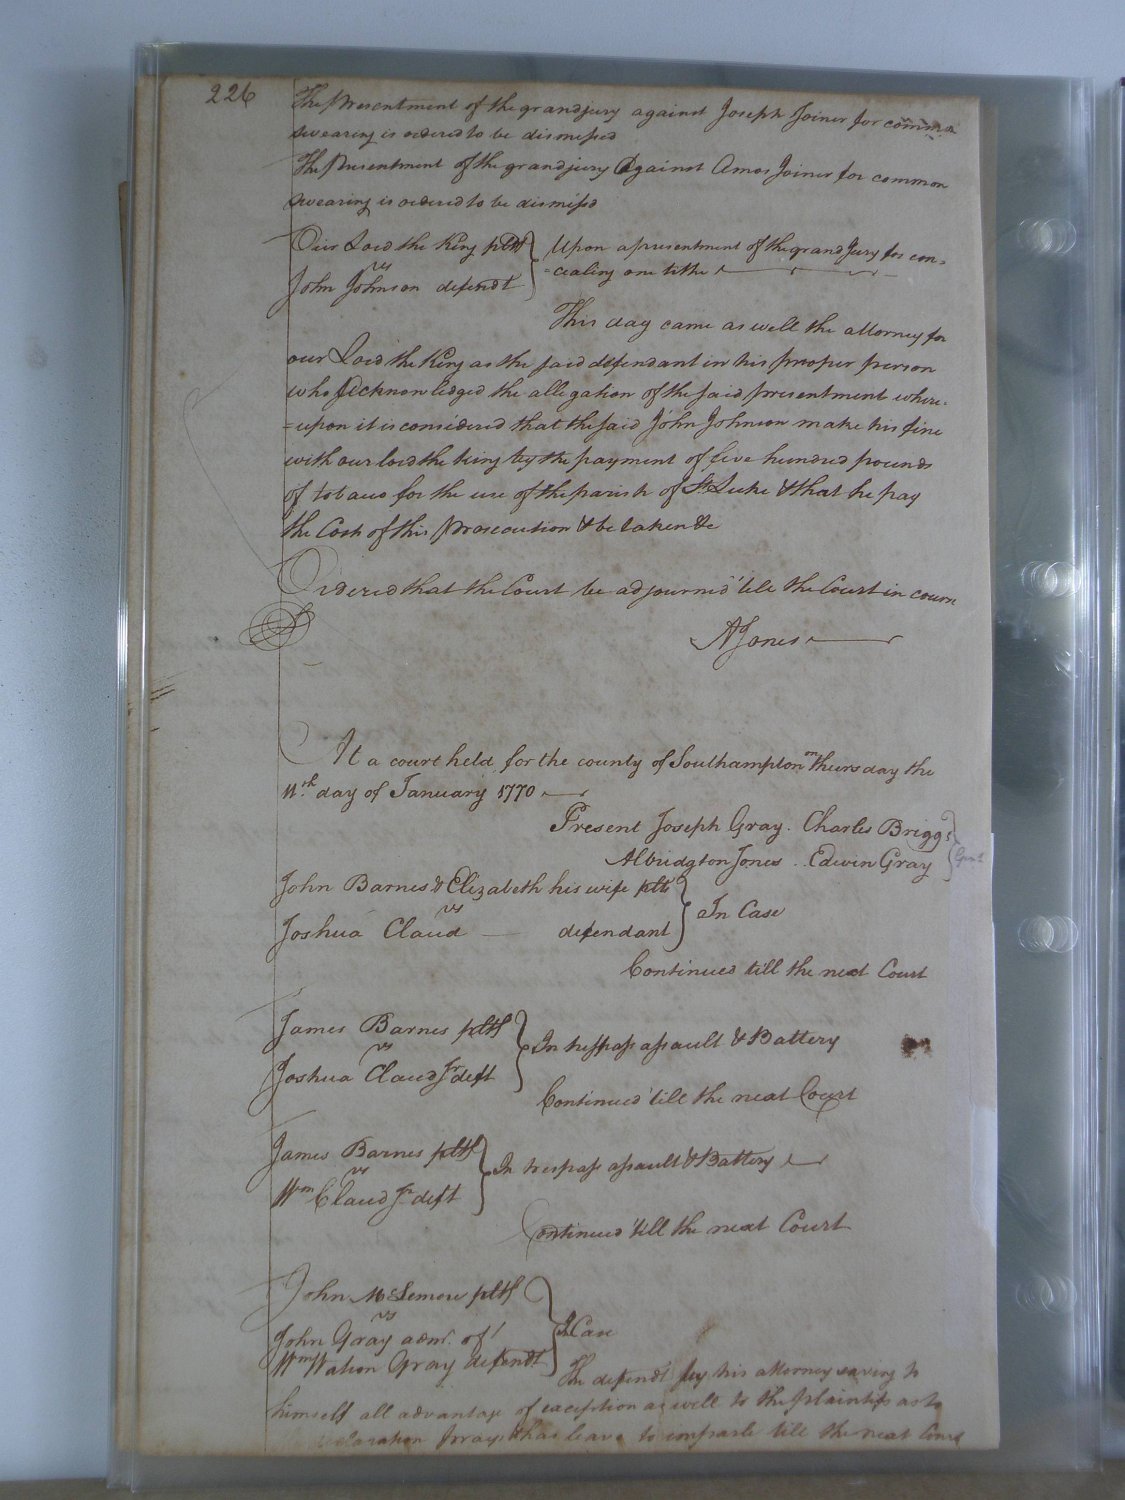 226
The Presentment of the grandjury against Joseph Joiner for common
swearing is ordered to be dismissed
The Presentment of the grandjury Against Amos Joiner for common
swearing is ordered to be dismissed
Our Lord the King pltf
vs
John Johnson defendt
Upon a presentment of the grand Jury for con=
=cealing one tithe
This day came as well the attorney for
our Lord the King as the said defendant in his proper person
who Acknowledged the allegation of the said presentment where=
=upon it is considered that the said John Johnson make his fine
with our lord the king by the payment of five hundred pounds
of tobacco for the use of the parish of St Luke & that he pay
the Costs of this Prosecution & be taken &c
Ordered that the Court be adjourned 'till the Court in course
AJones
At a court held for the county of Southampton on thursday the
11th day of January 1770
Present Joseph Gray. Charles Briggs
Albridgton Jones .. Edwin Gray
Gent
John Barnes & Elizabeth his wife plts
vs
Joshua Claud defendant
In Case
Continued till the next Court
James Barnes pltf
vs
Joshua Claud Jr deft
In trespass assault & Battery
Continued 'till the next Court
James Barnes pltf
vs
Wm Claud Jr deft
In trespass assault & Battery
Continued 'till the next Court
John McLemore pltf
vs
John Gray admr. of
Wm Watson Gray defendt
In Case
The defendt by his attorney saving to
himself all advantage of exception as well to the plaintifs as to
declaration prays & has leave to imparle till the next Court